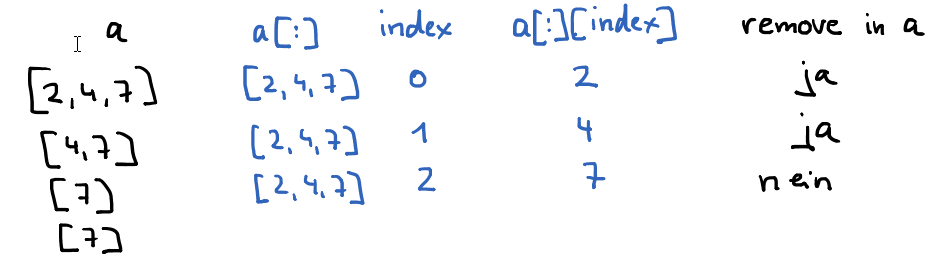 a a[:] index a[:][index] remove in a
[2,4,7] [2,4,7] 0 2 ja
[4,7] [2,4,7] 1 4 ja
[7] [2,4,7] 2 7 nein
[7]